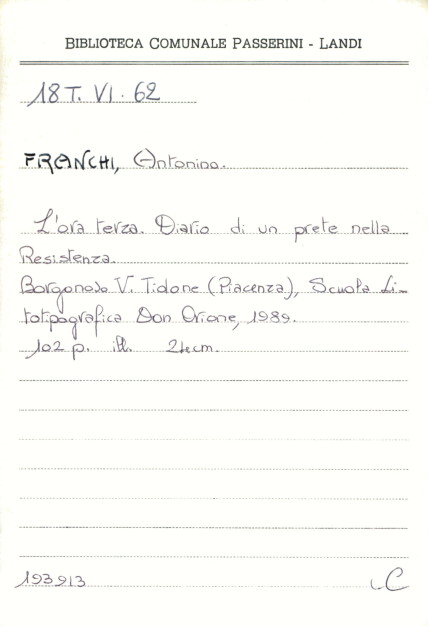 BIBLIOTECA COMUNALE PASSERINI - LANDI
18 T. VI. 62
FRANCHI, Antonino.
L'ora terza. Diario di un prete nella
Resistenza.
Borgonovo V. Tidone (Piacenza), Scuola Li-
totipografica Don Orione, 1989.
102 p. ill. 24cm.
193913